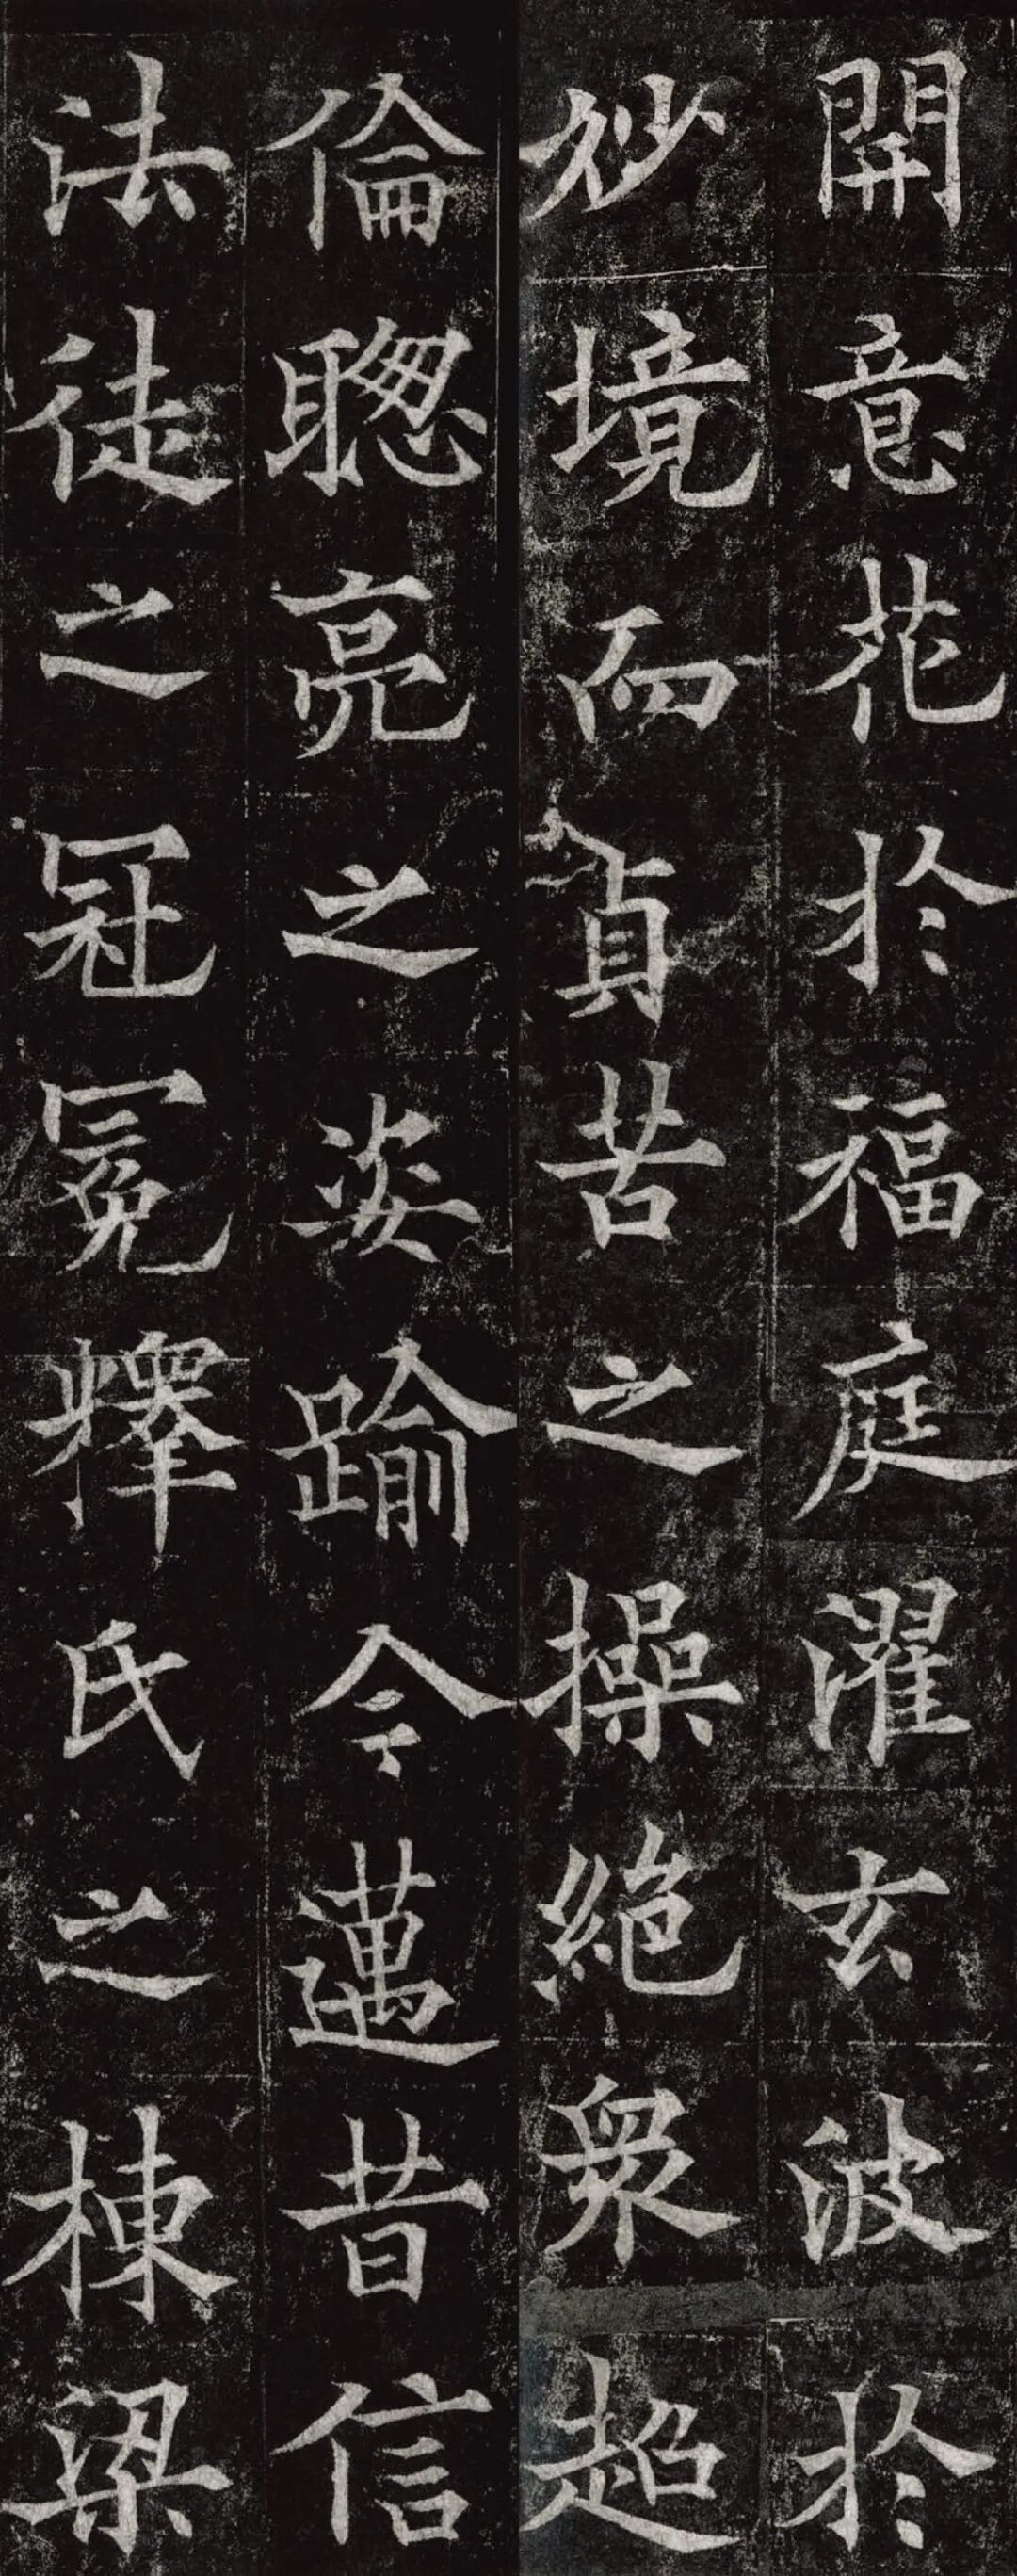 開意花於福庭濯玄波於
妙境而貞苦之操絕衆超
倫聦亮之姿踰今邁昔信
法徒之冠冕釋氏之棟梁